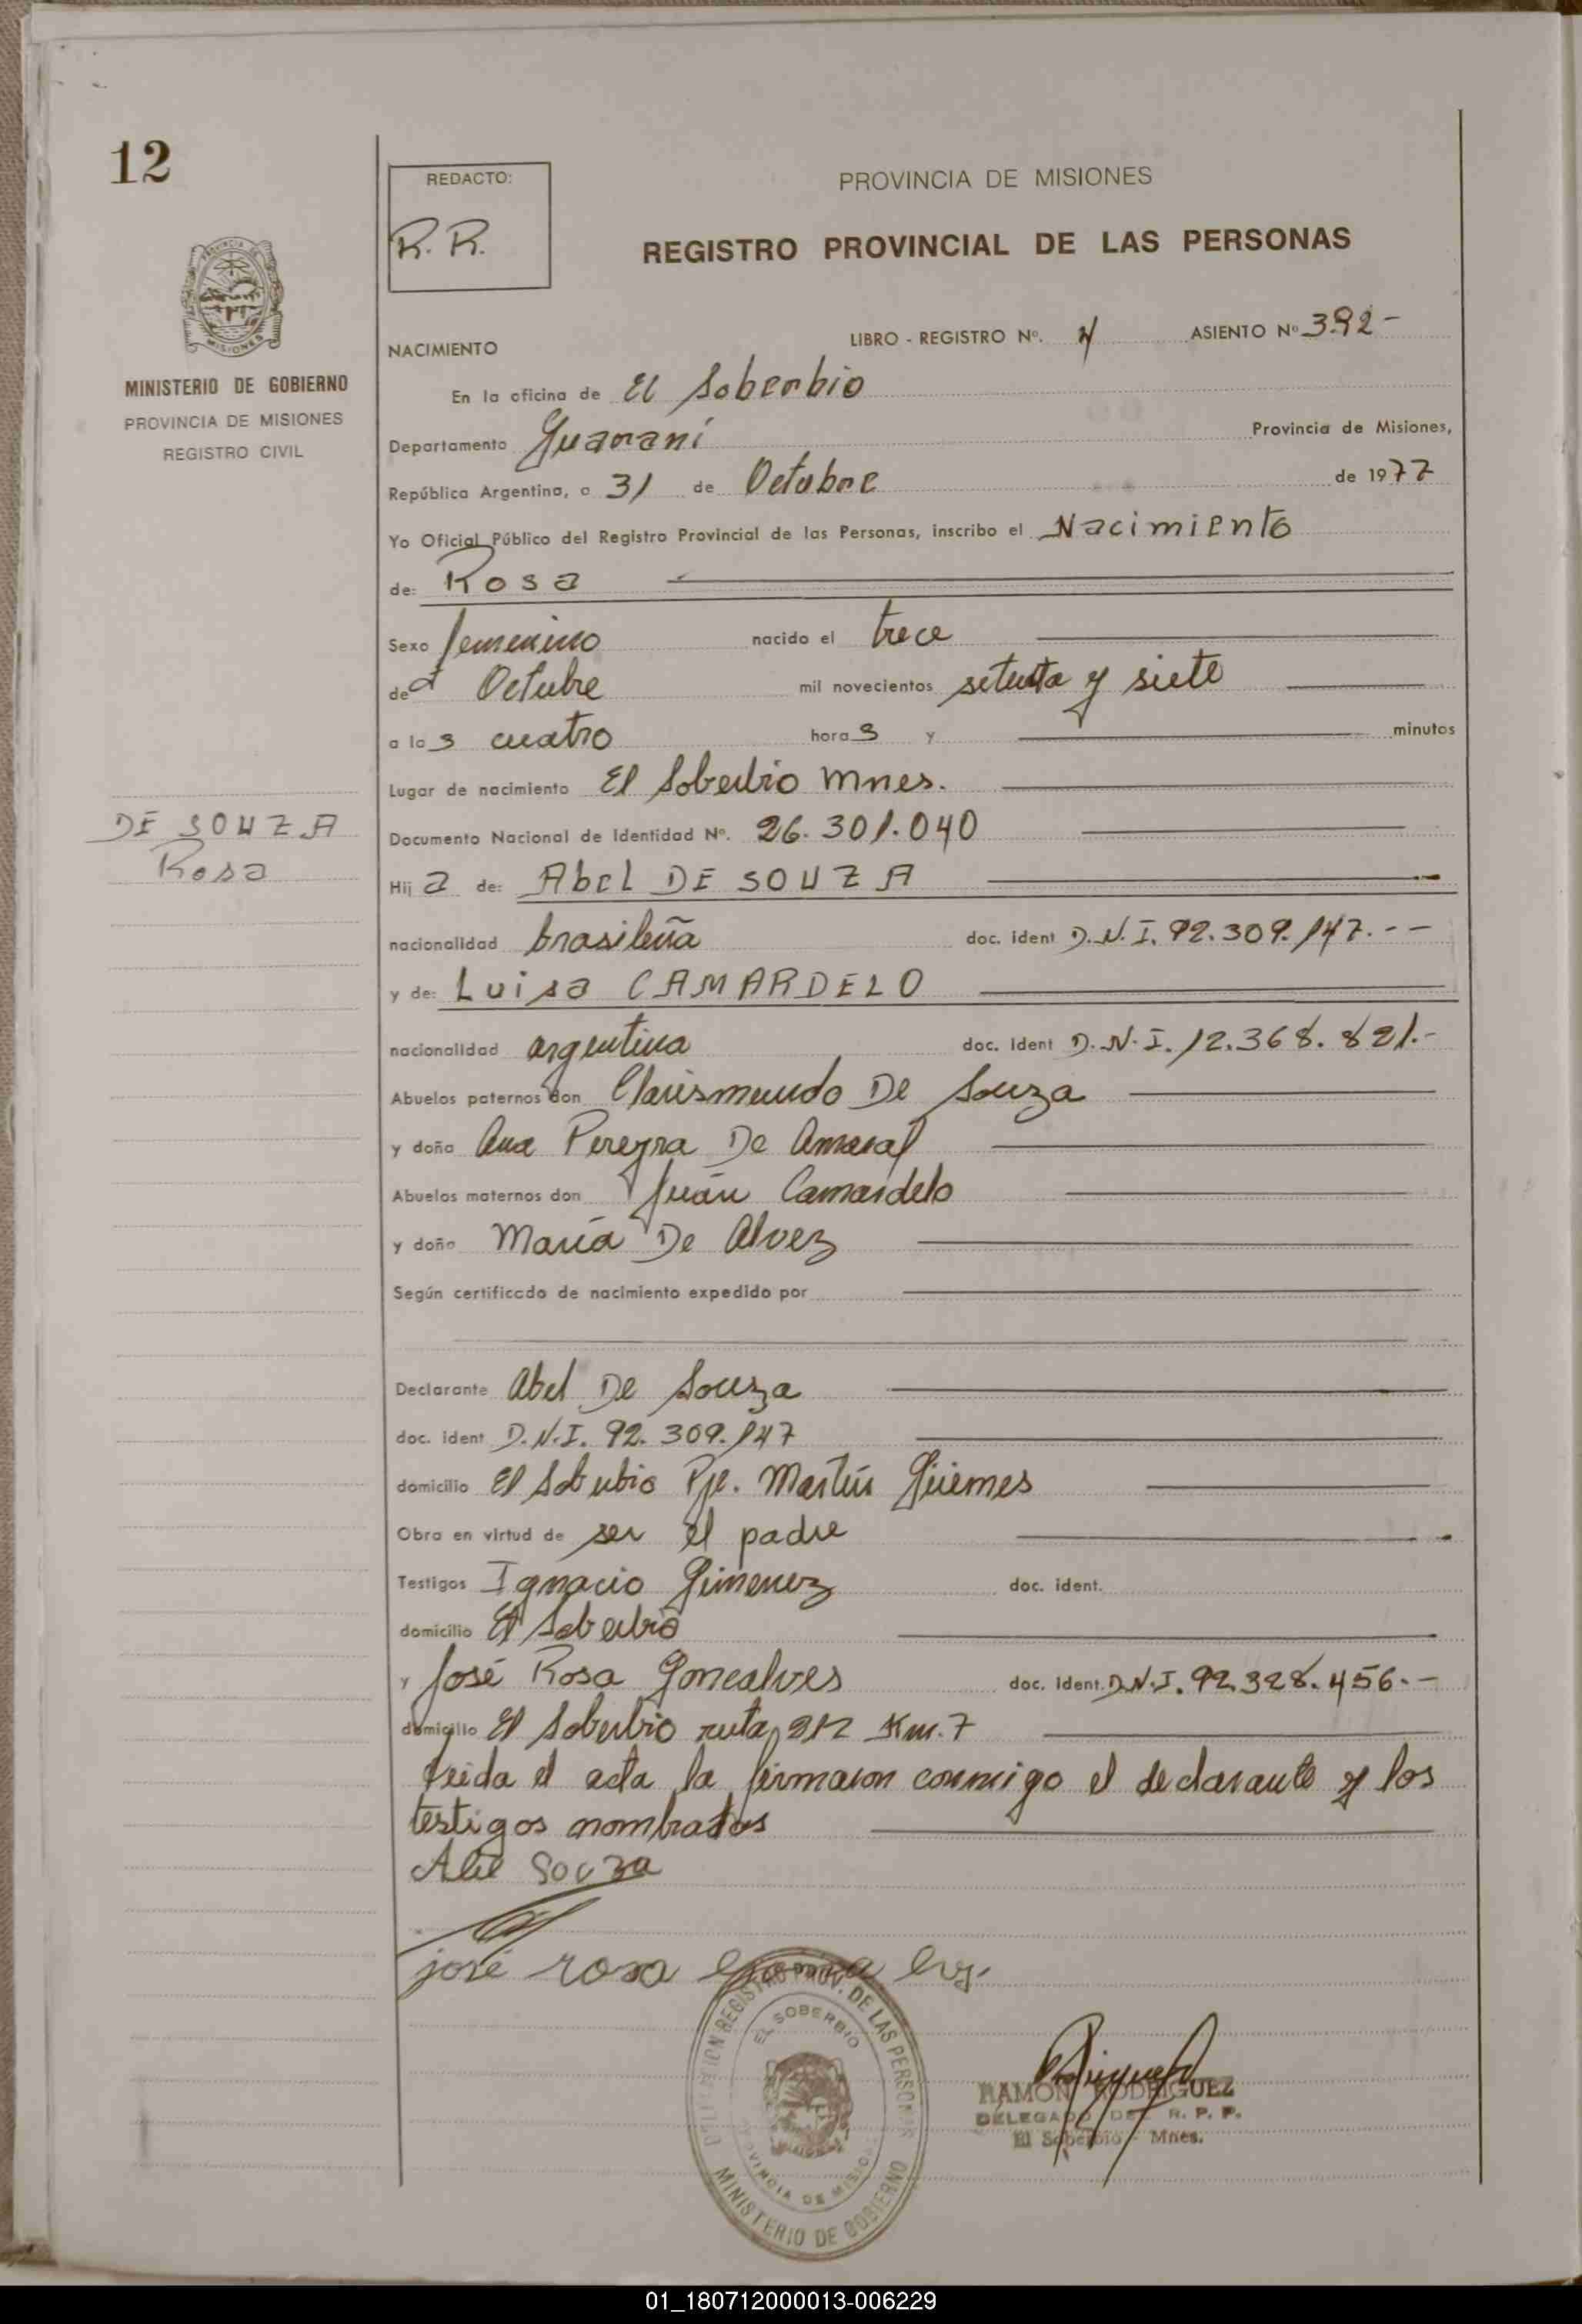 12
REDACTO:
R. R.
PROVINCIA DE MISIONES
REGISTRO PROVINCIAL DE LAS PERSONAS
PROVINCIA DE MISIONES
MINISTERIO DE GOBIERNO
PROVINCIA DE MISIONES
REGISTRO CIVIL
NACIMIENTO
LIBRO - REGISTRO Nº. ASIENTO Nº 392 -
En la oficina de El Soberbio
Departamento Guaraní Provincia de Misiones,
República Argentina, a 31 de Octubre de 1977
Yo Oficial Público del Registro Provincial de las Personas, inscribo el Nacimiento
de: Rosa
Sexo femenino nacido el trece
de Octubre mil novecientos setenta y siete
a las cuatro horas y minutos
Lugar de nacimiento El Soberbio Mnes.
DE SOUZA
Rosa
Documento Nacional de Identidad Nº. 26.301.040
Hija de: Abel DE SOUZA
nacionalidad brasileña doc. ident D.N.I. 92.309.147.--
y de: Luisa CAMARDELO
nacionalidad argentina doc. ident D.N.I. 12.368.821.-
Abuelos paternos don Clarismundo De Souza
y doña Ana Pereyra De Amaral
Abuelos maternos don Juán Camardelo
y doña María De Alvez
Según certificado de nacimiento expedido por
Declarante Abel De Souza
doc. ident D.N.I. 92.309.147
domicilio El Soberbio Pje. Martín Güemes
Obra en virtud de ser el padre
Testigos Ignacio Gimenez doc. ident.
domicilio El Soberbio
y José Rosa Goncalves doc. ident. D.N.I. 92.328.456.-
domicilio El Soberbio ruta 212 Km. 7
Leida el acta la firmaron conmigo el declarante y los
testigos nombrados
Abel Souza
josé rosa
DELEGACION REGISTRO PROV. DE LAS PERSONAS
EL SOBERBIO
PROVINCIA DE MISIONES
MINISTERIO DE GOBIERNO
RAMON RODRIGUEZ
DELEGADO DEL R. P. P.
El Soberbio - Mnes.
01_180712000013-006229